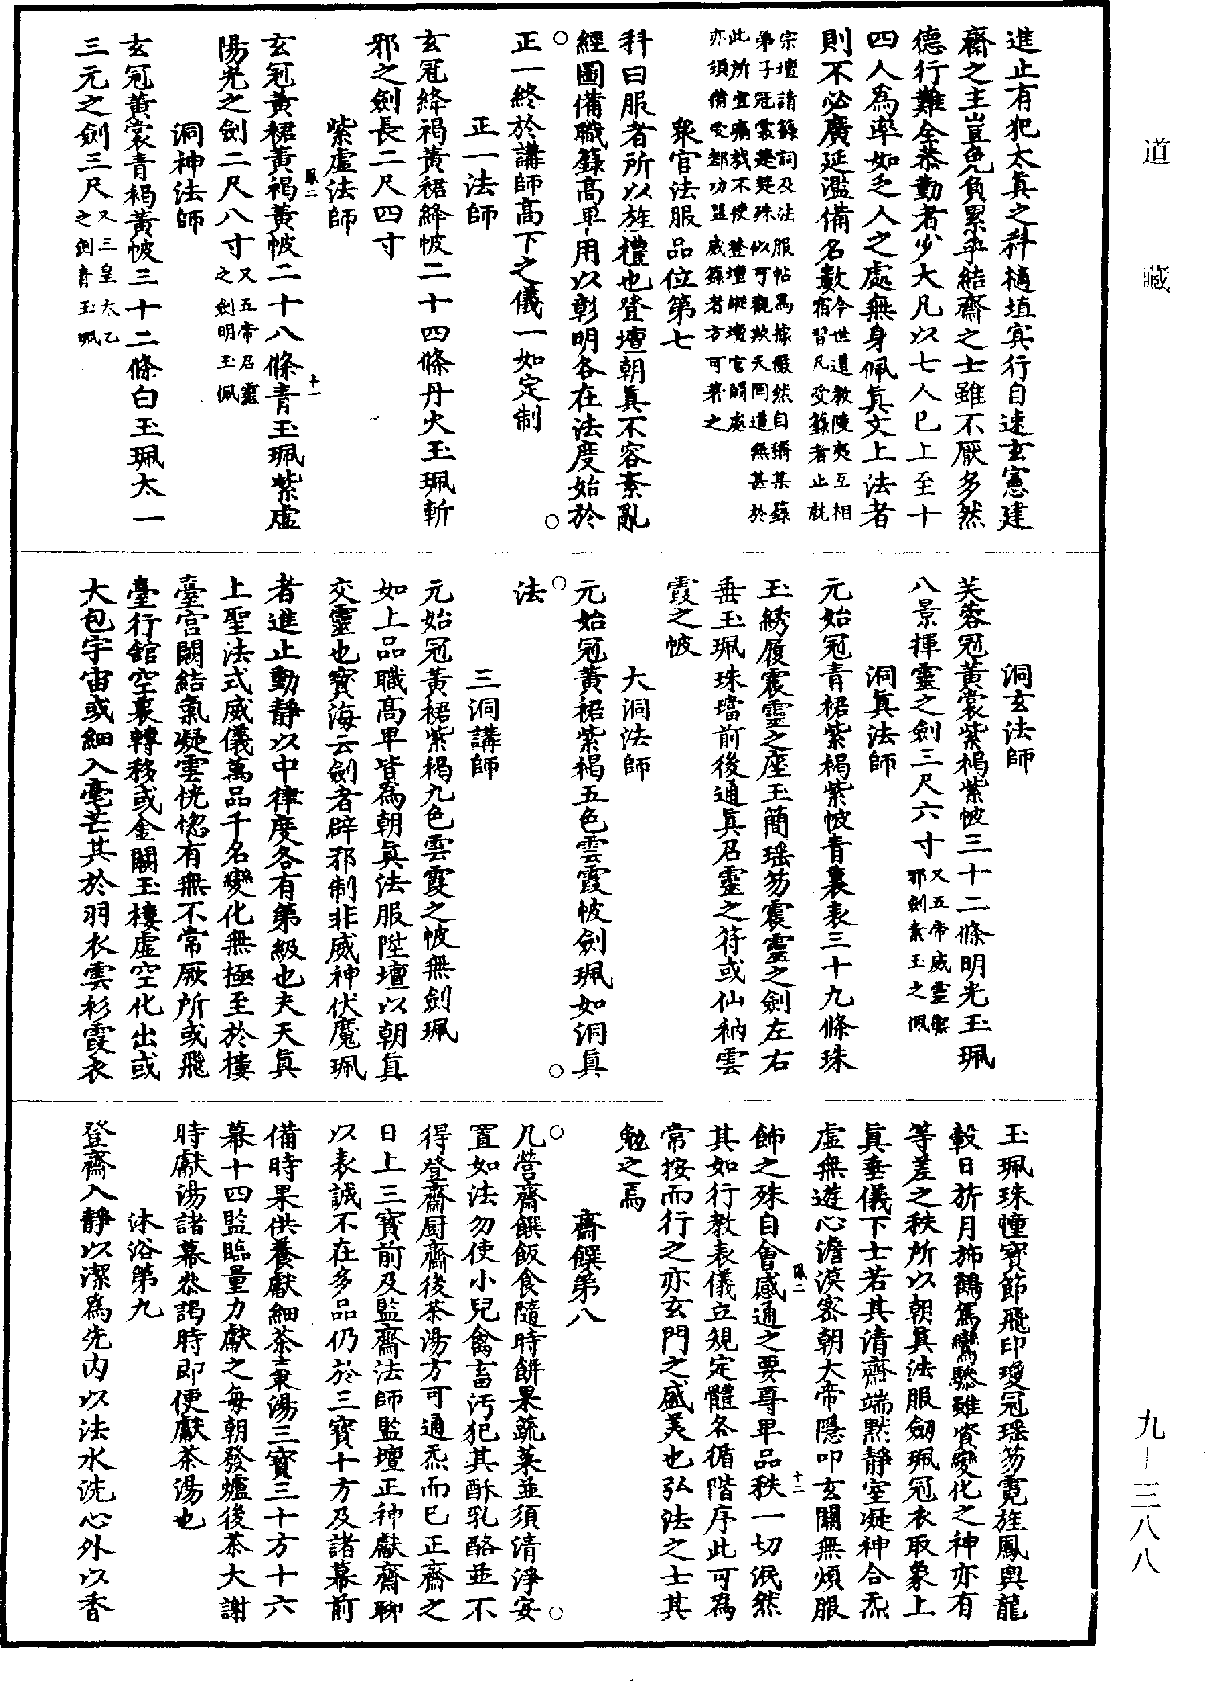 道藏
進止有犯太真之科擿埴㝠行自速玄憲建
齋之主豈免負累乎結齋之士雖不厭多然
德行難全恭勤者少大凡以七人已上至十
四人為率如乏人之處無身佩真文上法者
則不必廣延濫備名數今世道教陵夷互相宿習凡受籙者止就
宗壇請籙詞及法服帖為據儼然自稱某籙弟子冠裳楚楚殊似可觀欺天罔道無甚於
此所宜痛戒不使登壇蹤壇官嗣處亦須備受都功盟威籙者方可業之
衆官法服品位第七
科曰服者所以旌禮也登壇朝真不容紊亂
經圖備職籙高卑用以彰明各在法度始於
正一終於講師高下之儀一如定制
正一法師
玄冠絳褐黃裙絳帔二十四條丹火玉珮斬
邪之劍長二尺四寸
紫虛法師
玄冠黃裙黃褐黃帔二十八條青玉珮紫虛
陽光之劍二尺八寸又五帝召靈之劍明玉佩
洞神法師
玄冠黃裳青褐黃帔三十二條白玉珮太一
三元之劍三尺又三皇太乙之劍青玉珮
洞玄法師
芙蓉冠黃裳紫褐紫帔三十二條明光玉珮
八景揮靈之劍三尺六寸又五帝威靈禦邪劍素玉之佩
洞真法師
元始冠青裙紫褐紫帔青裏表三十九條珠
玉綉履震靈之座玉簡瑤笏震靈之劍左右
垂玉珮珠璫前後通真召靈之符或仙衲雲
霞之帔
大洞法師
元始冠黃裙紫褐五色雲霞帔劍珮如洞真
法
三洞講師
元始冠黃裙紫褐九色雲霞之帔無劍珮
如上品職高卑皆為朝真法服陞壇以朝真
交靈也寶海云劍者辟邪制非威神伏魔珮
者進止動靜以中律度各有第級也夫天真
上聖法式威儀萬品千名變化無極至於樓
臺宮闕結氣凝雲恍惚有無不常厥所或飛
臺行館空裏轉移或金闕玉樓虛空化出或
大包宇宙或細入毫芒其於羽衣雲衫霞衣
玉珮珠幢寶節飛印瓊冠瑤笏霓旌鳳輿龍
轂日旂月旆鶴駕鸞驂雖資變化之神亦有
等差之秩所以朝真法服劒珮冠衣取象上
真垂儀下士若其清齋端默靜室凝神合炁
虛無遊心澹漠密朝大帝隱叩玄關無煩服
飾之殊自會感通之要尊卑品秩一切泯然
其如行教表儀立規定體各循階序此可為
常按而行之亦玄門之盛美也弘法之士其
勉之焉
齋饌第八
凡營齋饌飯食隨時餅果蔬菜並須清淨安
置如法勿使小兒禽畜污犯其酥乳酪並不
得登齋厨齋後茶湯方可通炁而已正齋之
日上三寶前及監齋法師監壇正神獻齋聊
以表誠不在多品仍於三寶十方及諸幕前
備時果供養獻細茶棗湯三寶三十方十六
幕十四監臨量力獻之每朝發爐後茶大謝
時獻湯諸幕恭謁時即便獻茶湯也
沐浴第九
登齋入靜以潔為先內以法水洗心外以香
九—三八八